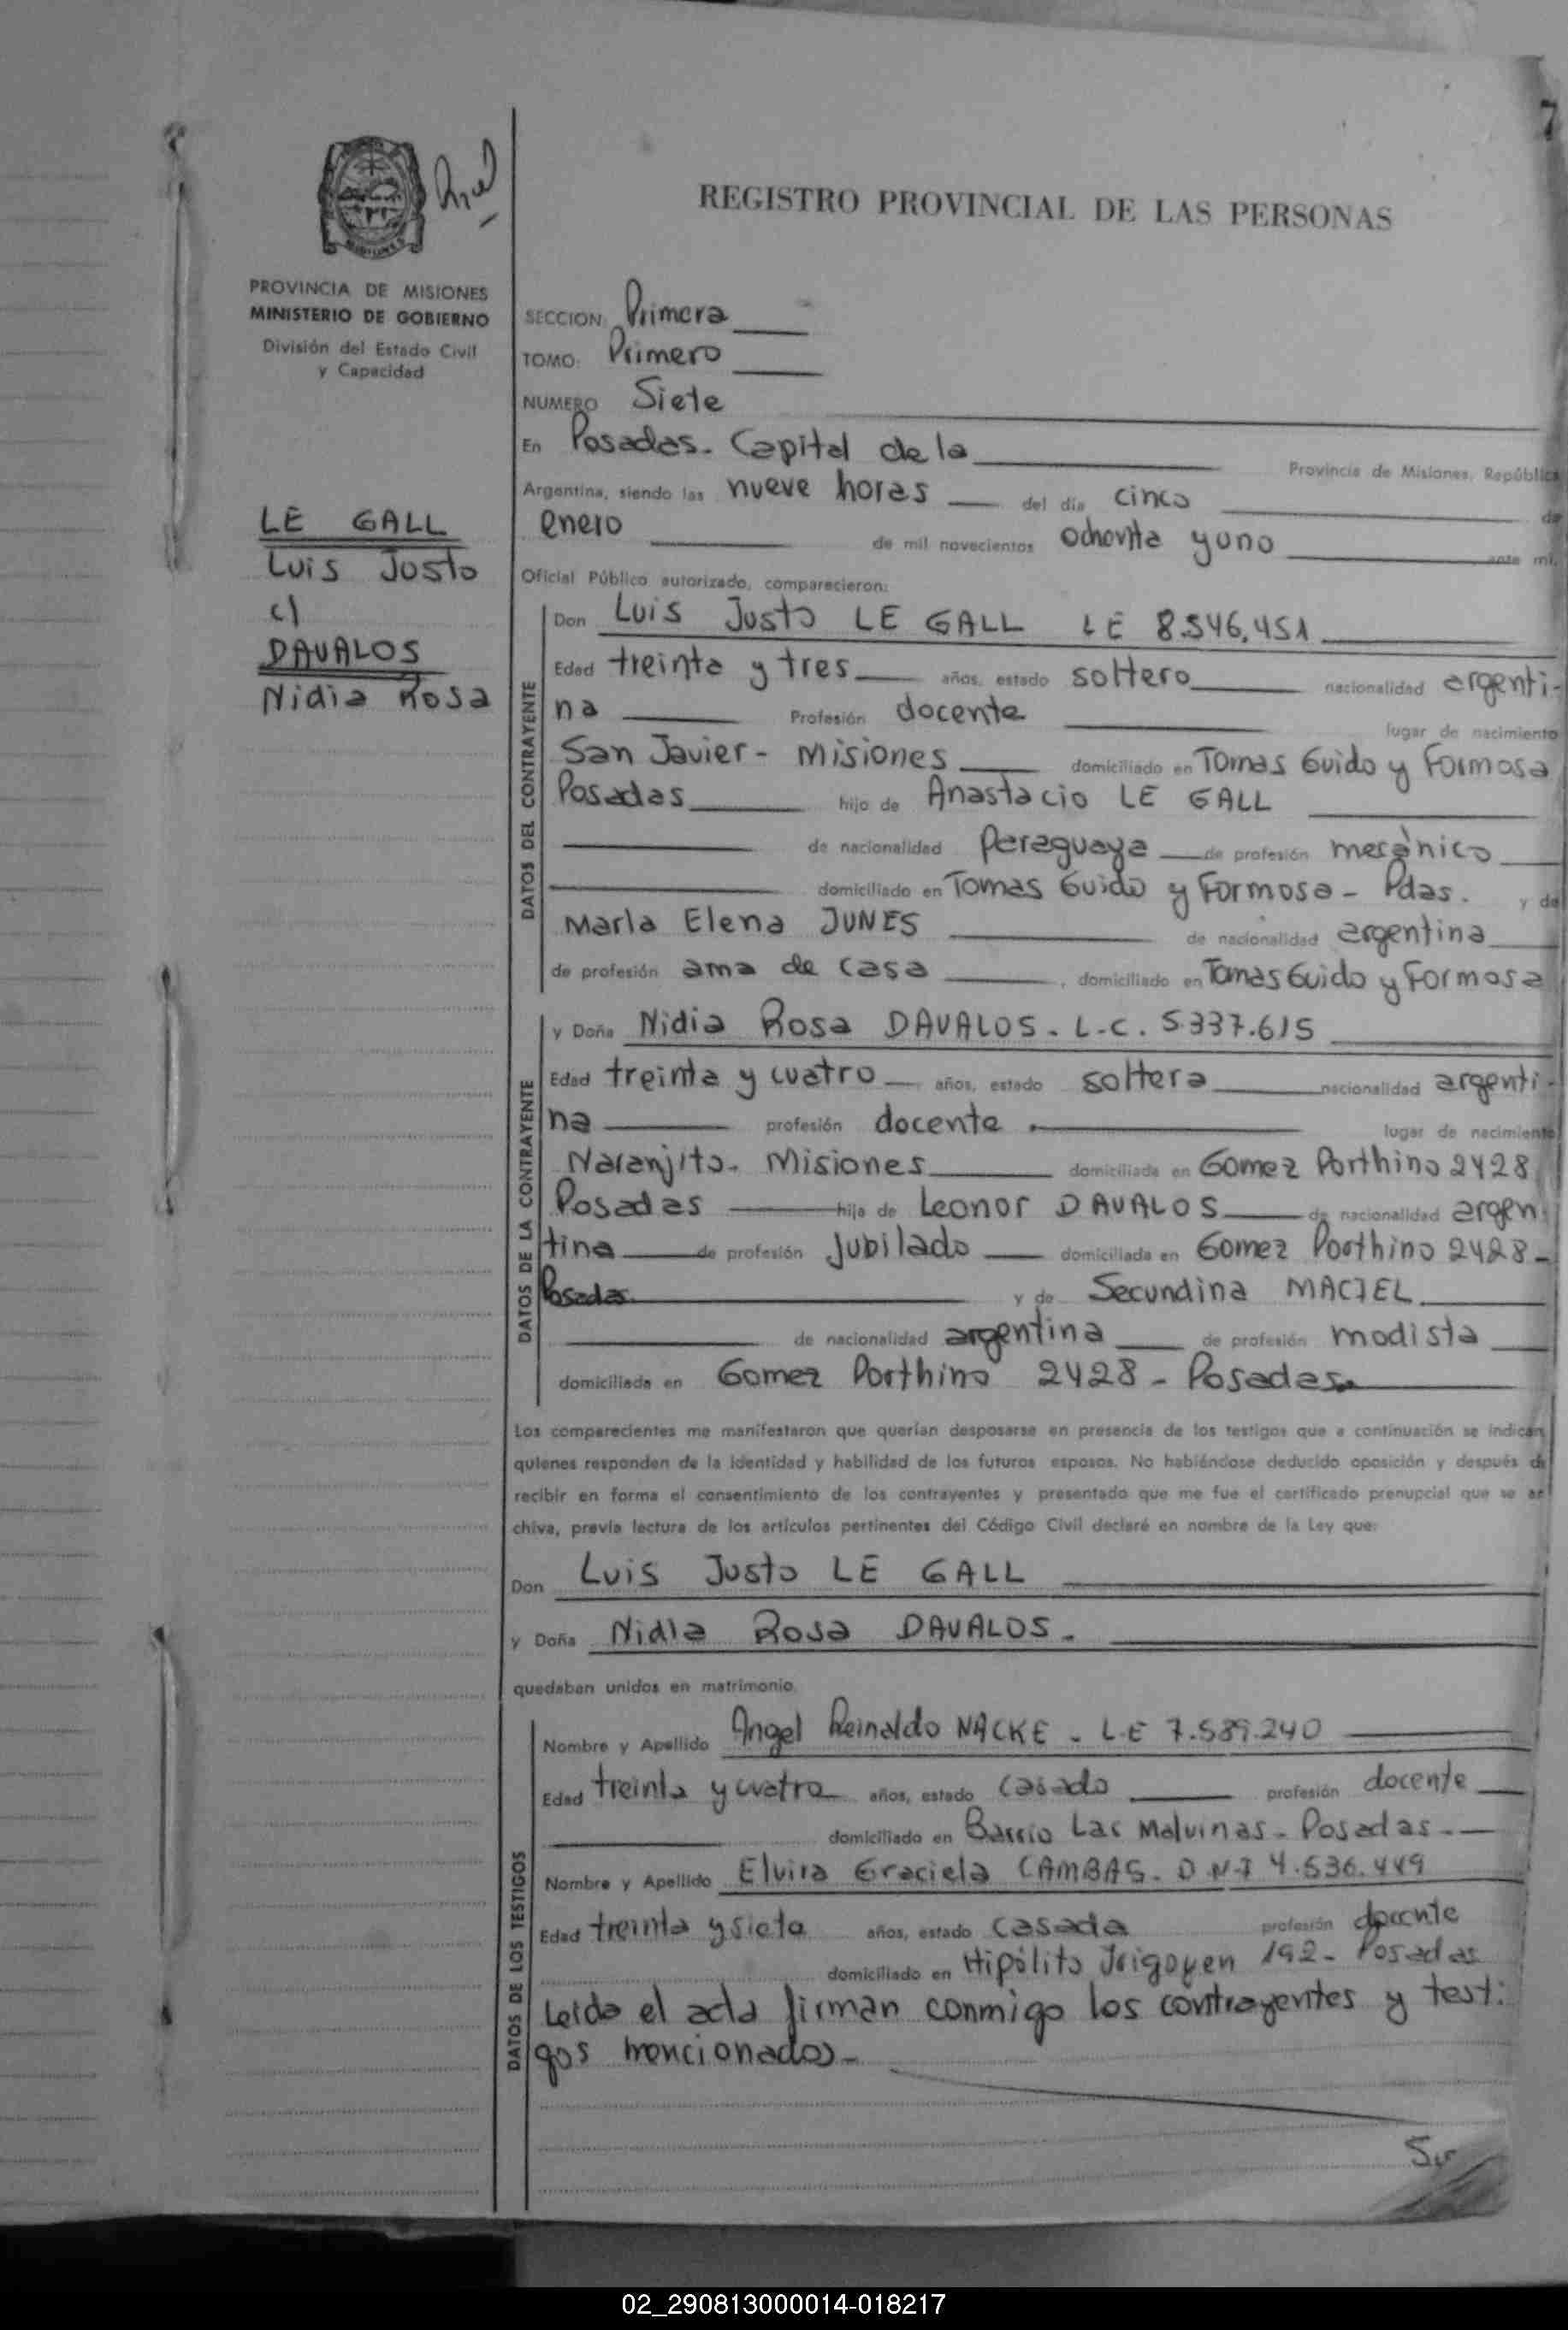 7
REGISTRO PROVINCIAL DE LAS PERSONAS
PROVINCIA DE MISIONES
MINISTERIO DE GOBIERNO
División del Estado Civil
y Capacidad
LE GALL
Luis Justo
c/
DAVALOS
Nidia Rosa
SECCION: Primera
TOMO: Primero
NUMERO Siete
En Posadas. Capital de la Provincia de Misiones, República
Argentina, siendo las nueve horas del día cinco de
enero de mil novecientos ochenta y uno ante mí,
Oficial Público autorizado, comparecieron:
DATOS DEL CONTRAYENTE
Don Luis Justo LE GALL LE 8.546.451
Edad treinta y tres años, estado soltero nacionalidad argenti-
na Profesión docente lugar de nacimiento
San Javier - Misiones domiciliado en Tomas Guido y Formosa
Posadas hijo de Anastacio LE GALL
de nacionalidad Paraguaya de profesión mecánico
domiciliado en Tomas Guido y Formosa - Pdas. y de
Maria Elena JUNES de nacionalidad argentina
de profesión ama de casa, domiciliado en Tomas Guido y Formosa
DATOS DE LA CONTRAYENTE
y Doña Nidia Rosa DAVALOS. L.C. 5.337.615
Edad treinta y cuatro años, estado soltera nacionalidad argenti-
na profesión docente. lugar de nacimiento
Naranjito. Misiones domiciliada en Gomez Porthino 2428
Posadas hija de Leonor DAVALOS de nacionalidad argen
tina de profesión Jubilado domiciliada en Gomez Porthino 2428-
Posadas y de Secundina MACIEL
de nacionalidad argentina de profesión modista
domiciliada en Gomez Porthino 2428 - Posadas
Los comparecientes me manifestaron que querían desposarse en presencia de los testigos que a continuación se indican
quienes responden de la identidad y habilidad de los futuros esposos. No habiéndose deducido oposición y después de
recibir en forma el consentimiento de los contrayentes y presentado que me fue el certificado prenupcial que se ar
chiva, previa lectura de los artículos pertinentes del Código Civil declaré en nombre de la Ley que:
Don Luis Justo LE GALL
y Doña Nidia Rosa DAVALOS.
quedaban unidos en matrimonio.
DATOS DE LOS TESTIGOS
Nombre y Apellido Angel Reinaldo NACKE - L.E 7.589.240
Edad treinta y cuatro años, estado casado profesión docente
domiciliado en Barrio Las Malvinas - Posadas -
Nombre y Apellido Elvira Graciela CAMBAS. D.N.I 4.536.449
Edad treinta y siete años, estado casada profesión docente
domiciliado en Hipólito Irigoyen 192 - Posadas
Leida el acta firman conmigo los contrayentes y testi
gos mencionados -
02_290813000014-018217